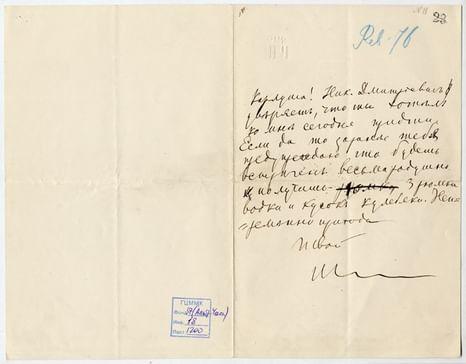 № 18
23
Рев-76
Карлуша! Ник. Дмитриевич
уверяет, что ты хотел
ко мне сегодня придти
Если да то заранее тебя
предупреждаю что будешь
встречен весьма радушно
и получишь 3 рюмки
водки и кусок кулебяки. Непре-
менно приходи
Твой
ГЦММК
Фонд
Инв. 18
Пост. 1200